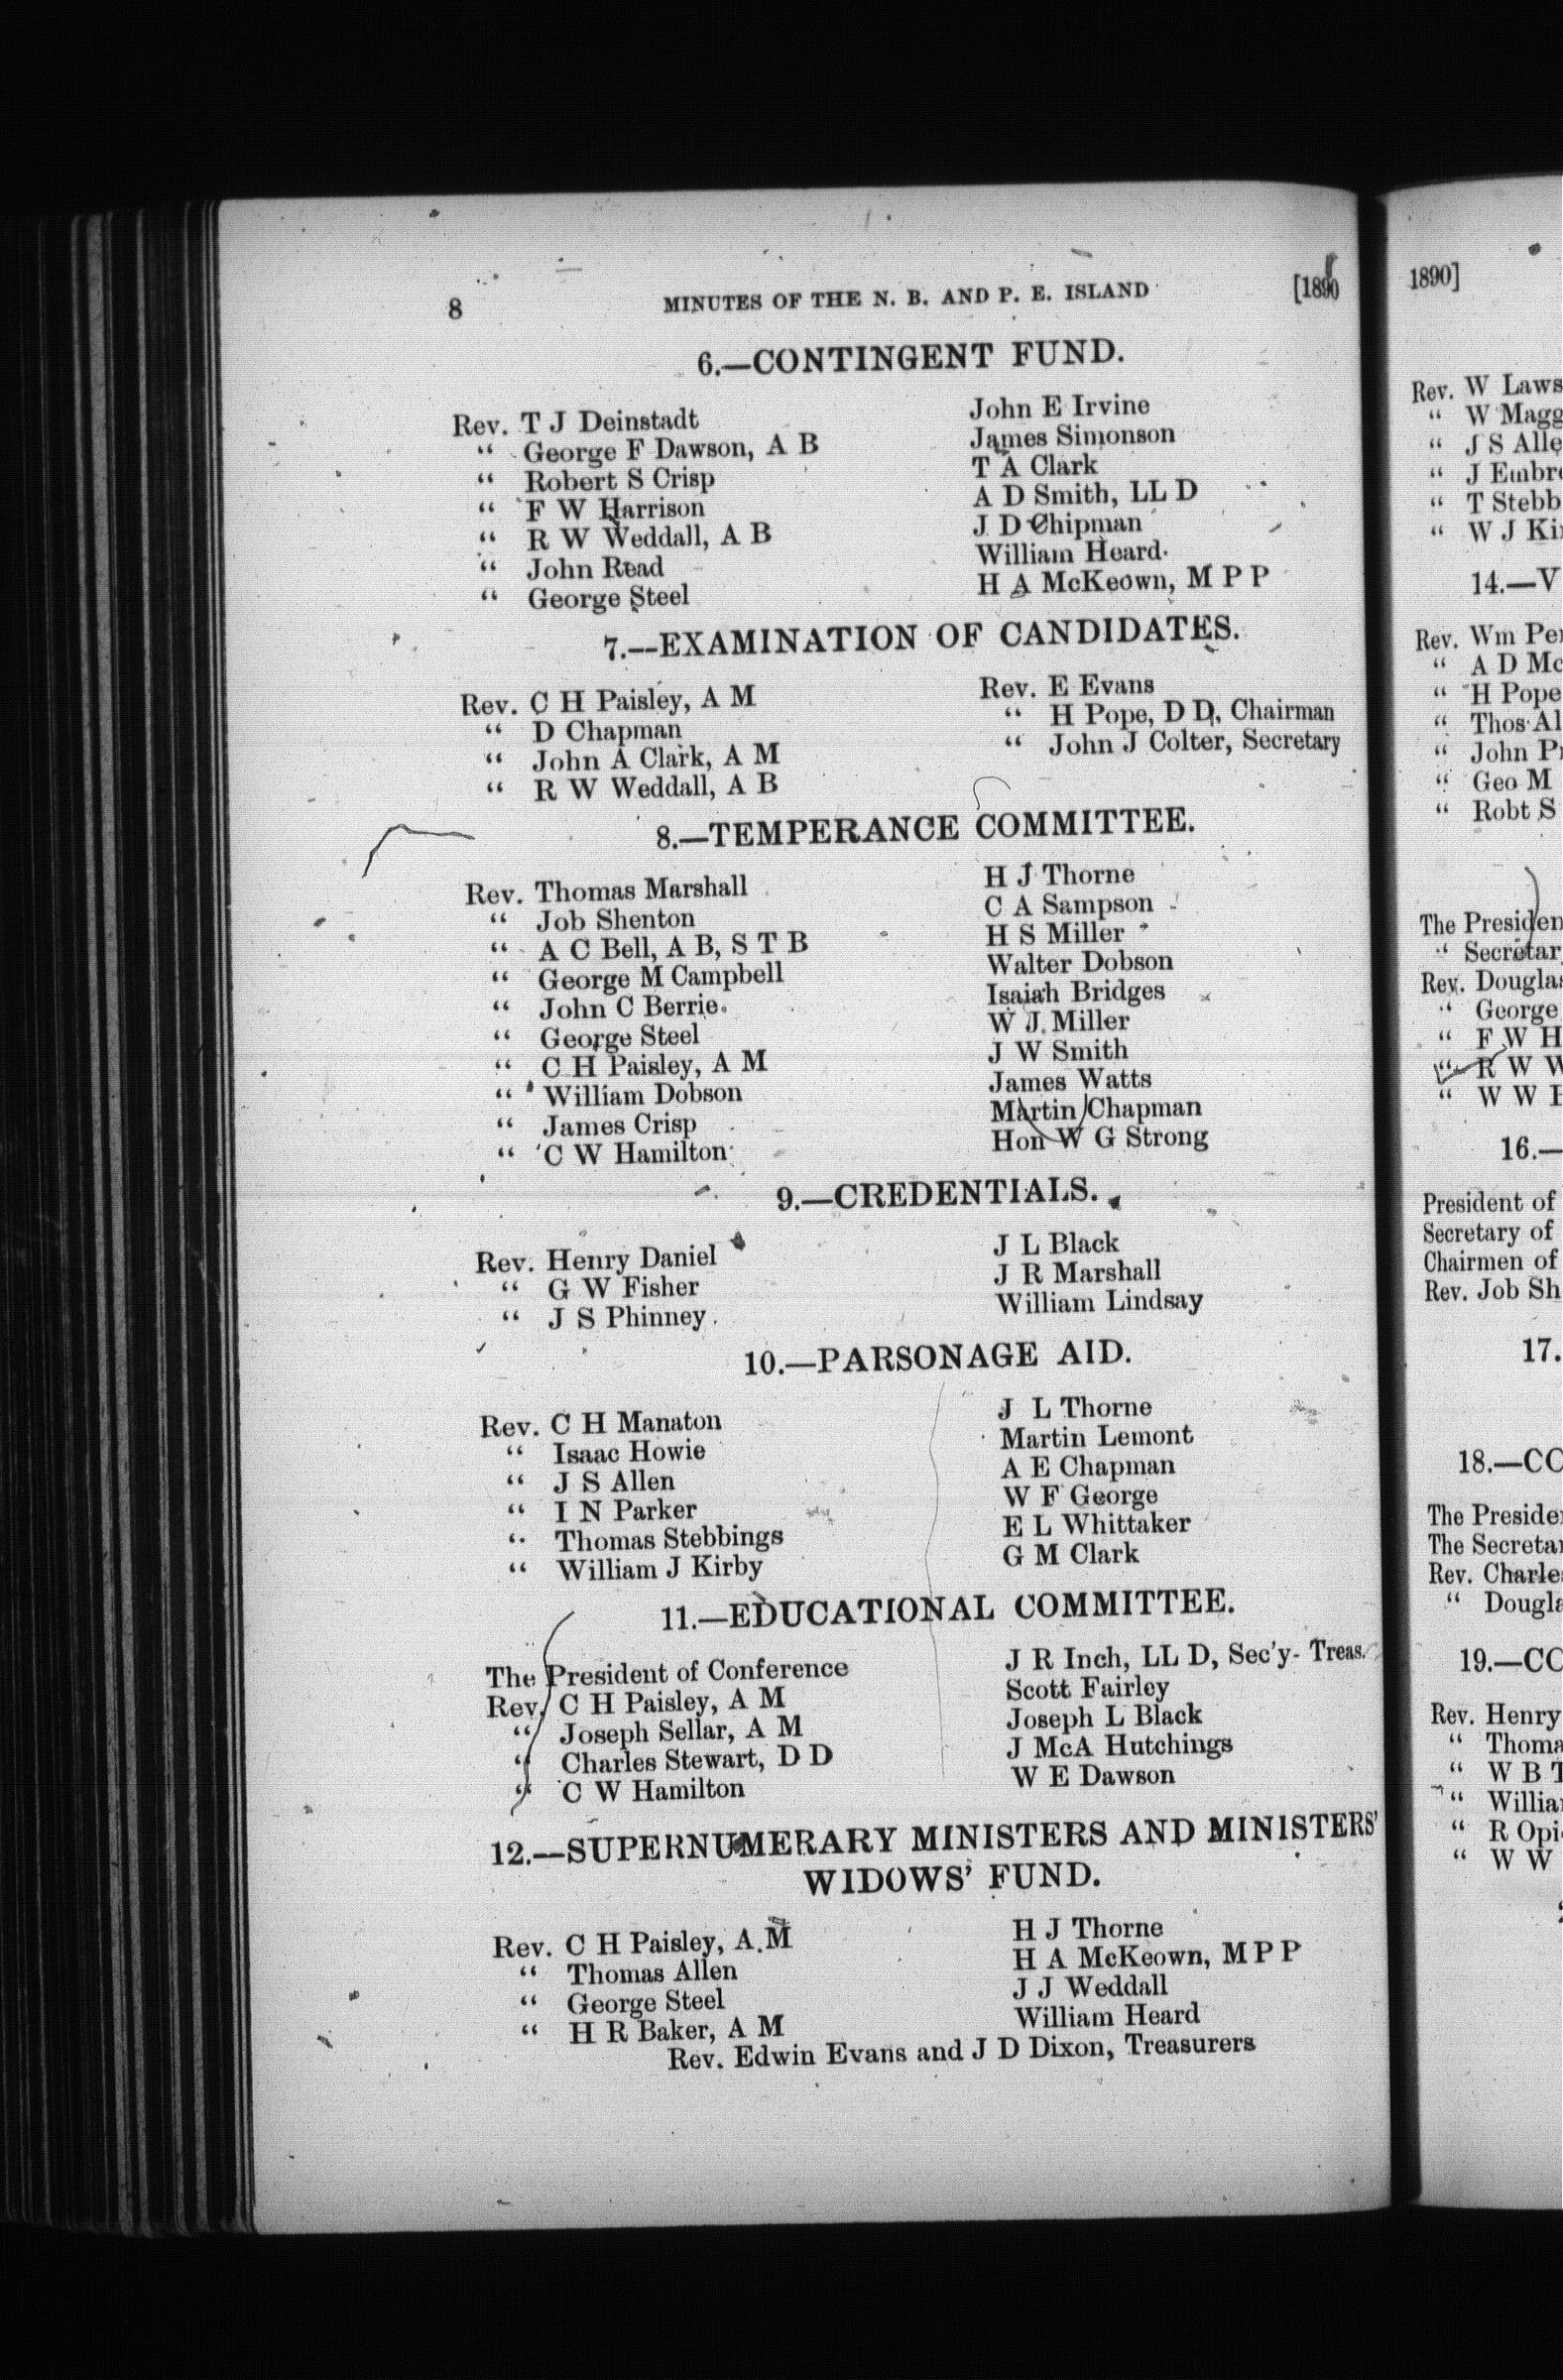 8 MINUTES OF THE N. B. AND P. E. ISLAND [1890
6.—CONTINGENT FUND.
Rev. T J Deinstadt
“ George F Dawson, A B
“ Robert S Crisp
“ F W Harrison
“ R W Weddall, A B
“ John Read
“ George Steel
John E Irvine
James Simonson
T A Clark
A D Smith, LL D
J D Chipman
William Heard.
H A McKeown, M P P
7.—EXAMINATION OF CANDIDATES.
Rev. C H Paisley, A M
“ D Chapman
“ John A Clark, A M
“ R W Weddall, A B
Rev. E Evans
“ H Pope, D D, Chairman
“ John J Colter, Secretary
8.—TEMPERANCE COMMITTEE.
Rev. Thomas Marshall
“ Job Shenton
“ A C Bell, A B, S T B
“ George M Campbell
“ John C Berrie.
“ George Steel
“ C H Paisley, A M
“ William Dobson
“ James Crisp
“ C W Hamilton
H J Thorne
C A Sampson
H S Miller
Walter Dobson
Isaiah Bridges
W J. Miller
J W Smith
James Watts
Martin Chapman
Hon W G Strong
9.—CREDENTIALS.
Rev. Henry Daniel
“ G W Fisher
“ J S Phinney.
J L Black
J R Marshall
William Lindsay
10.—PARSONAGE AID.
Rev. C H Manaton
“ Isaac Howie
“ J S Allen
“ I N Parker
“ Thomas Stebbings
“ William J Kirby
J L Thorne
Martin Lemont
A E Chapman
W F George
E L Whittaker
G M Clark
11.—EDUCATIONAL COMMITTEE.
The President of Conference
Rev. C H Paisley, A M
“ Joseph Sellar, A M
“ Charles Stewart, D D
“ C W Hamilton
J R Inch, LL D, Sec'y- Treas.
Scott Fairley
Joseph L Black
J McA Hutchings
W E Dawson
12.—SUPERNUMERARY MINISTERS AND MINISTERS'
WIDOWS' FUND.
Rev. C H Paisley, A. M
“ Thomas Allen
“ George Steel
“ H R Baker, A M
H J Thorne
H A McKeown, M P P
J J Weddall
William Heard
Rev. Edwin Evans and J D Dixon, Treasurers
1890]
Rev. W
“ W
“ J S
“ J
“ T
“ W J
14.—
Rev. Wm
“ A D
“ H Pope
“ Thos
“ John
“ Geo M
“ Robt S
The
“
Rev.
“ George
“ F W H
“ R W
“ W W
16.—
President of
Secretary of
Chairmen of
Rev. Job
17.
18.—
The
The
Rev.
“
19.—
Rev. Henry
“
“ W B
“
“ R
“ W W